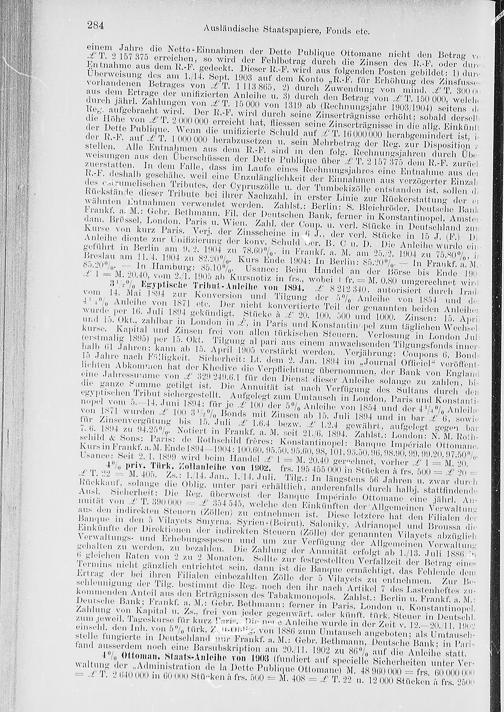 284 Ausländische Staatspapiere, Fonds etc.
einem Jahre die Netto-Einnahmen der Dette Publique Ottomane nicht den Betrag
£ T. 2 157 375 erreichen, so wird der Fehlbetrag durch die Zinsen des R.-F. oder
Entnahme aus dem R.-F. gedeckt. Dieser R.-F. wird aus folgenden Posten gebildet: 1)
Überweisung des am 1./14. Sept. 1903 auf dem Konto „R.-F. für Erhöhung des Zinsfusses
vorhandenen Betrages von £ T. 1 113 865, 2) durch Zuwendung von mind. £ T.
aus dem Ertrage der unifizierten Anleihe u. 3) durch den Betrag von £ T. 150 000, welche
durch jährl. Zahlungen von £ T. 15 000 von 1319 ab (Rechnungsjahr 1903/1904) seitens
Reg. aufgebracht wird. Der R.-F. wird durch seine Zinserträgnisse erhöht; sobald derselbe
die Höhe von £ T. 2 000 000 erreicht hat, fliessen seine Zinserträgnisse in die allg. Einkünfte
der Dette Publique. Wenn die unifizierte Schuld auf £ T. 16 000 000 herabgemindert ist,
der R.-F. auf £ T. 1 000 000 herabzusetzen u. sein Mehrbetrag der Reg. zur Disposition
stellen. Alle Entnahmen aus dem R.-F. sind in den folg. Rechnungsjahren durch
weisungen aus den Überschüssen der Dette Publique über £ T. 2 157 375 dem R.-F.
zuerstatten. In dem Falle, dass im Laufe eines Rechnungsjahres eine Entnahme aus
R.-F. deshalb geschähe, weil eine Unzulänglichkeit der Einnahmen aus verzögerter
des ostrumelischen Tributes, der Cypruszölle u. der Tumbekizölle entstanden ist, sollen
Rückstände dieser Tribute bei ihrer Nachzahl. in erster Linie zur Rückerstattung der
wähnten Entnahmen verwendet werden. Zahlst.: Berlin: S. Bleichröder, Deutsche Bank
Frankf. a. M.: Gebr. Bethmann, Fil. der Deutschen Bank, ferner in Konstantinopel,
dam, Brüssel, London, Paris u. Wien. Zahl. der Coup. u. verl. Stücke in Deutschland zum
Kurse von kurz Paris. Verj. der Zinsscheine in 6 J., der verl. Stücke in 15 J. (F.) D.
Anleihe diente zur Unifizierung der konv. Schuld Ser. B. C u. D. Die Anleihe wurde
geführt in Berlin am 9./2. 1904 zu 78.60%, in Frankf. a. M. am 25./2. 1904 zu 75.80%,
Breslau am 11./4. 1904 zu 82.20%. Kurs Ende 1904: In Berlin: 85.20%. — In Frankf. a. M.
85.20%. — In Hamburg: 85.10%. Usance: Beim Handel an der Börse bis Ende 190
£ 1 = M. 20.40, vom 2./1. 1905 ab Kursnotiz in frs., wobei 1 fr. = M. 0.80 umgerechnet
3½% Egyptische Tribut-Anleihe von 1894. £ 8 212 340, autorisiert durch Irad
vom 14. Mai 1894 zur Konversion und Tilgung der 5% Anleihe von 1854 und
4¼% Anleihe von 1871 etc. Der nicht konvertierte Teil der genannten beiden Anleihen
wurde per 16. Juli 1894 gekündigt. Stücke à £ 20, 100, 500 und 1000. Zinsen: 15. April
und 15. Okt., zahlbar in London in £, in Paris und Konstantinopel zum täglichen Wechsel-
kurse. Kapital und Zinsen frei von allen türkischen Steuern. Verlosung in London
(erstmalig 1895) per 15. Okt. Tilgung al pari aus einem anwachsenden Tilgungsfonds inner-
halb 61 Jahren; kann ab 15. April 1905 verstärkt werden. Verjährung: Coupons 6, Bonds
15 Jahre nach Fälligkeit. Sicherheit: Lt. dem 2. Jan. 1894 im „Journal Officiel“ veröffent-
lichten Abkommen hat der Khedive die Verpflichtung übernommen, der Bank von England
eine Jahressumme von £ 329 249.6.1 für den Dienst dieser Anleihe solange zu zahlen,
die ganze Summe getilgt ist. Die Annuität ist nach Verfügung des Sultans durch
egyptischen Tribut sichergestellt. Aufgelegt zum Umtausch in London, Paris und Konstanti-
nopel vom 5.—14. Juni 1894; für je £ 100 der 5% Anleihe von 1854 und der 4¼% Anleihe
von 1871 wurden £ 100 3½% Bonds mit Zinsen ab 15. Juli 1894 und in bar £ 6, sowie
für Zinsenvergütung bis 15. Juli £ 1.6.4 bezw. £ 1.2.4 gewährt, aufgelegt gegen
7./6. 1894 zu 94.25%. Notiert in Frankf. a. M. seit 21./6. 1894. Zahlst.: London: N. M. Roth-
schild & Sons; Paris: de Rothschild frères; Konstantinopel: Banque Impériale Ottomane.
Kurs in Frankf. a. M. Ende 1894—1904: 100.60, 95.50, 95.60, 98, 101, 93.50, 96, 98.90, 99, 99.20, 97.50%.
Usance: Seit 2./1. 1899 wird beim Handel £ 1 = M. 20.40 gerechnet, vorher £ 1 = M. 20.
4% priv. Türk. Zollanleihe von 1902. frs. 195 455 000 in Stücken à frs. 500 = £ 20
£ T. 22 = M. 405. Zs.: 1./14. Jan., 1./14. Juli. Tilg.: In längstens 56 Jahren u. zwar durch
Rückkauf, solange die Oblig. unter pari erhältlich, anderenfalls durch halbj. stattfindende
Ausl. Sicherheit: Die Reg. überweist der Banque Impériale Ottomane eine jährl. An-
nuität von £ T. 390 000 = £ 354 545, welche den Einkünften der Allgemeinen Verwaltung
aus den indirekten Steuern (Zölle) zu entnehmen ist. Diese letztere hat den Filialen der
Banque in den 5 Vilayets Smyrna, Syrien-(Beirut), Saloniky, Adrianopel und Broussa die
Einkünfte der Direktionen der indirekten Steuern (Zölle) der genannten Vilayets abzüglich
Verwaltungs- und Erhebungsspesen und zur Verfügung der Allgemeinen Verwaltung
gehalten werden, zu bezahlen. Die Zahlung der Annuität erfolgt ab 1./13. Juli 1886
6 gleichen Raten von 2 zu 2 Monaten. Sollte zur festgestellten Verfallzeit der Betrag eines
Termins nicht gänzlich entrichtet sein, dann ist die Banque ermächtigt, das Fehlende dem
Ertrag der bei ihren Filialen einbezahlten Zölle der 5 Vilayets zu entnehmen. Zur Be-
schleunigung der Tilg. bestimmt die Reg. noch den ihr nach Artikel 7 des Lastenheftes zu-
kommenden Anteil aus den Erträgnissen des Tabakmonopols. Zahlst.: Berlin u. Frankf. a. M.:
Deutsche Bank; Frankf. a. M.: Gebr. Bethmann; ferner in Paris, London u. Konstantinopel.
Zahlung von Kapital u. Zs. frei von jeder gegenwärt. oder künft. türk. Steuer in Deutschl.
zum jeweil. Tageskurse für kurz Paris. Die neue Anleihe wurde in der Zeit v. 12.—20./11. 1902
einschl. den Inh. von 5% türk. Zoll-Oblig. von 1886 zum Umtausch angeboten; als Umtausch-
stelle fungierte in Deutschland nur Frankf. a. M.: Gebr. Bethmann, Deutsche Bank; in Paris
fand ausserdem noch eine Barsubskription am 20./11. 1902 zu 86% auf die Anleihe statt.
4% Ottoman. Staats-Anleihe von 1903 (fundiert auf spezielle Sicherheiten unter Ver-
waltung der „Administration de la Dette Publique Ottomane) M. 48 960 000 = frs. 60 000 000
= £ T. 2 640 000 in 60 000 Stücken à frs. 500 = M. 408 = £ T. 22 u. 12 000 Stücken à frs. 2500